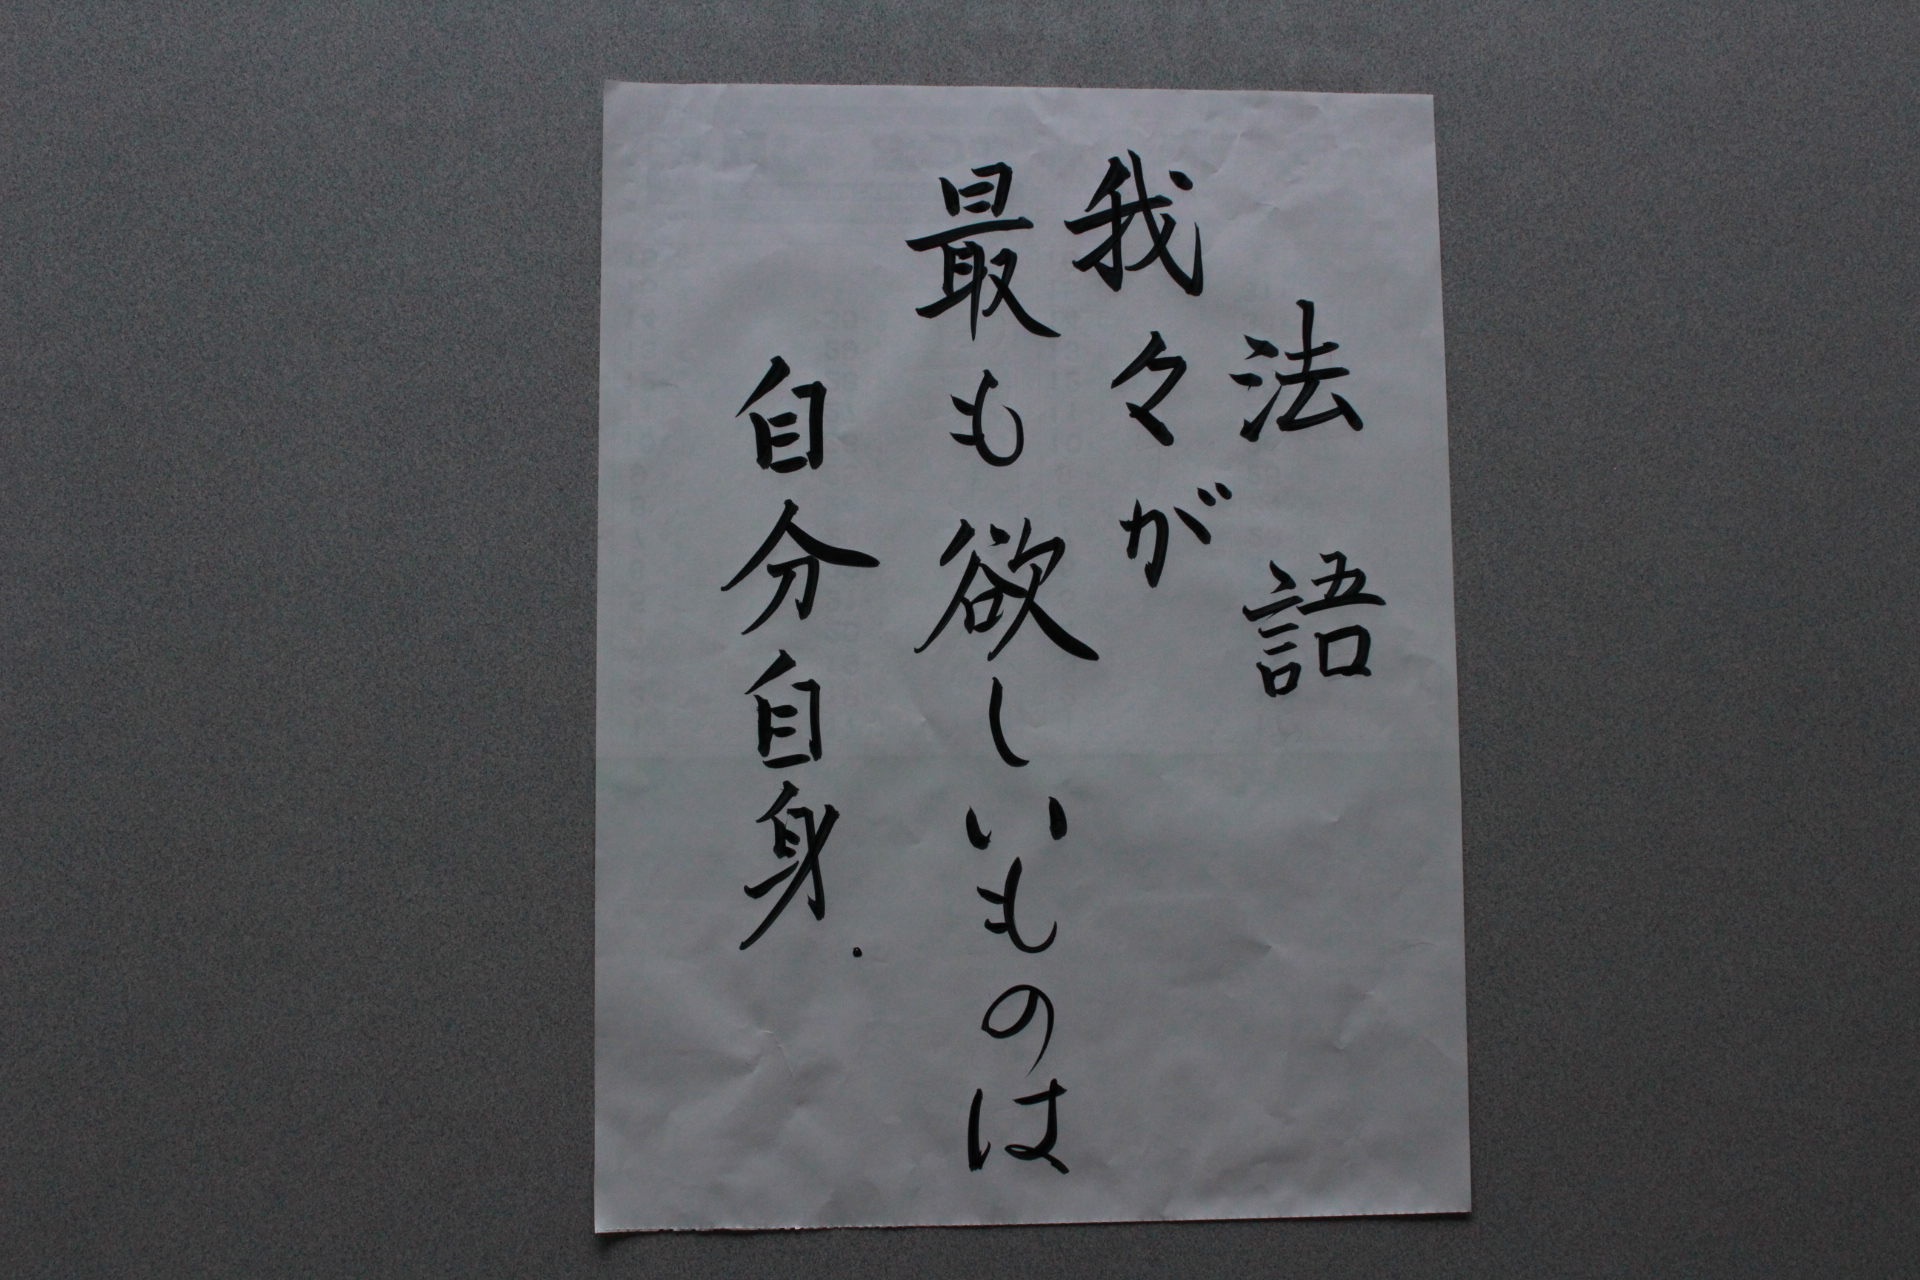 法語
我々が
最も欲しいものは
自分自身.